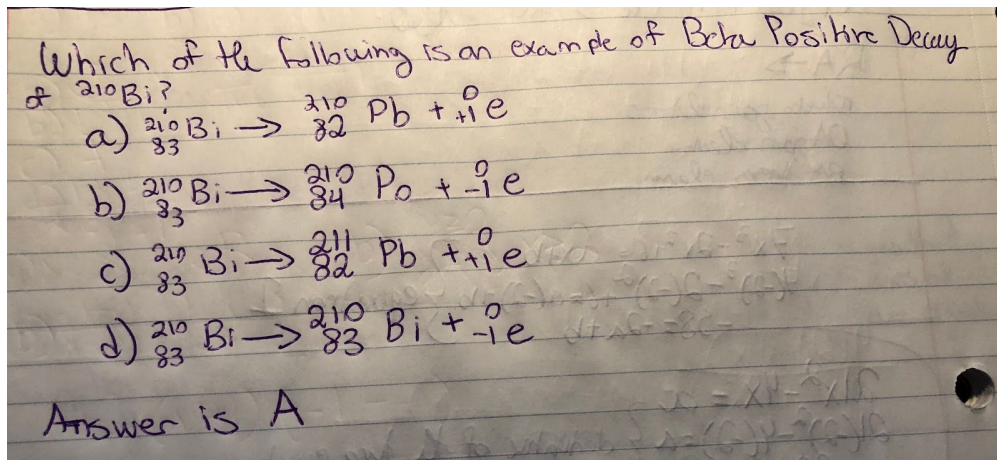 Which of the following is an example of Beta Positive Decay
of ²¹⁰Bi?
a) ²¹⁰₈₃Bi → ²¹⁰₈₂Pb + ⁰₊₁e
b) ²¹⁰₈₃Bi → ²¹⁰₈₄Po + ⁰₋₁e
c) ²¹⁰₈₃Bi → ²¹¹₈₂Pb + ⁰₊₁e
d) ²¹⁰₈₃Bi → ²¹⁰₈₃Bi + ⁰₋₁e
Answer is A